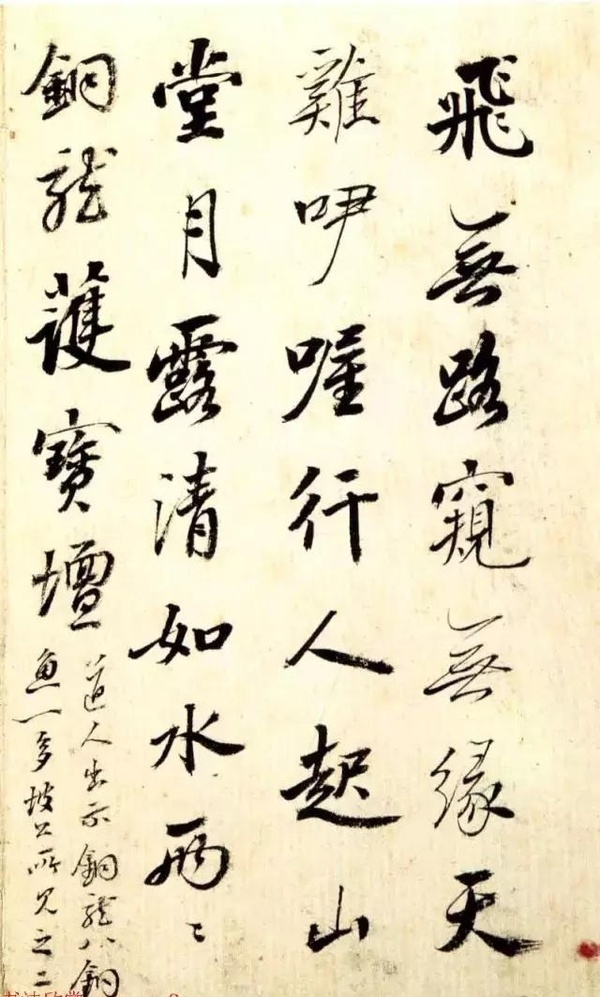 飛無路窺無緣天
雞咿喔行人起山
堂月露清如水兩〻
銅龍護寶壇
道人出示銅龍八銅
魚一多坡公所見之二